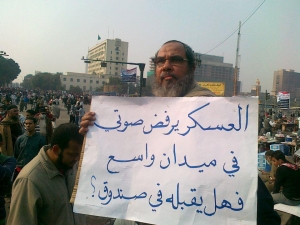 العسكر يرفض صوتي
في ميدان واسع
فهل يقبله في صندوق؟